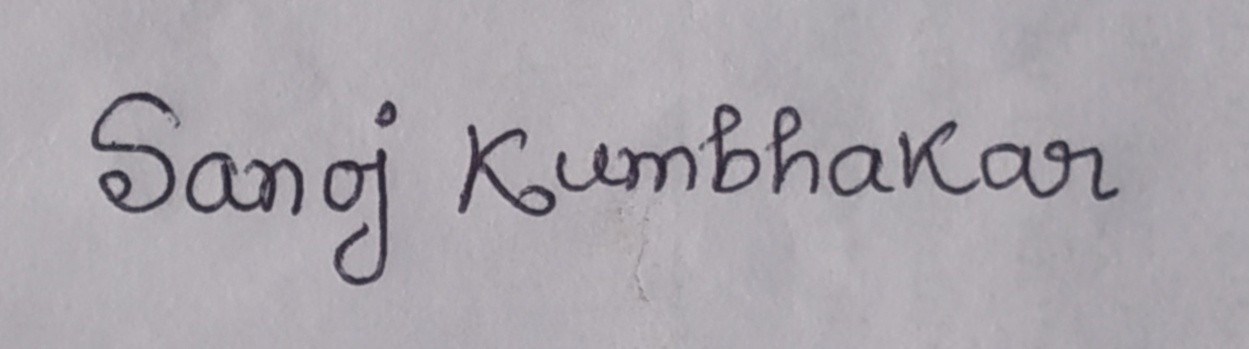 Sanoj Kumbhakar